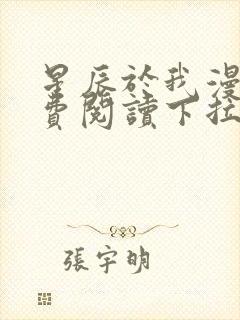 星辰於我漫
費閱讀下拉
張宇明